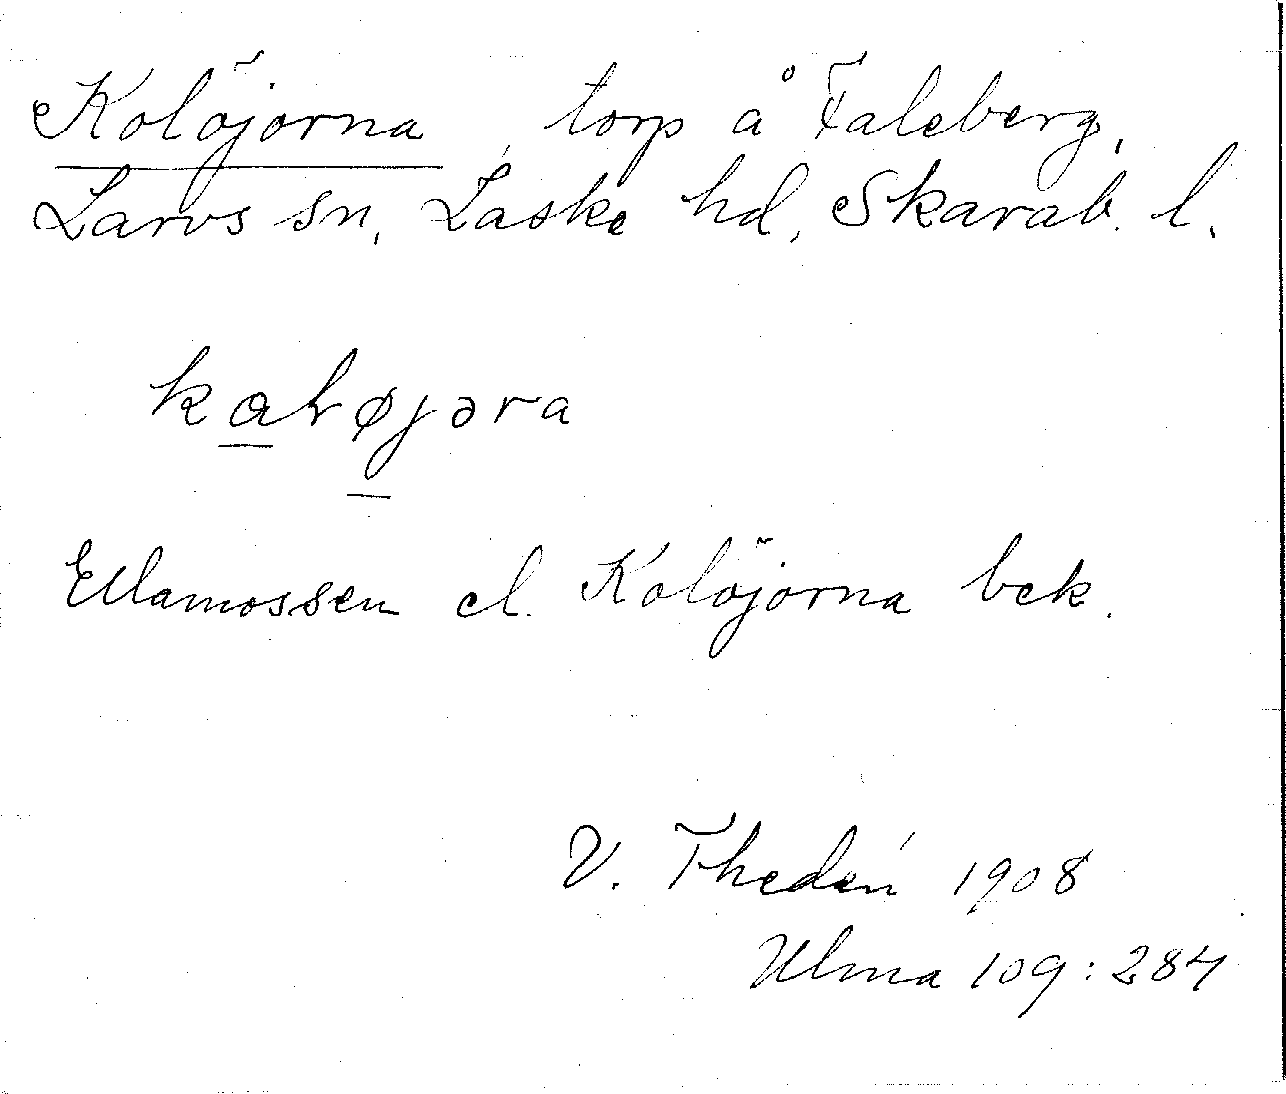 Kolöjorna, torp å Faleberg,
Larvs sn, Laske hd, Skarab. l.
kaløjəra
Ellamossen el. Kolöjorna bek.
V. Thedén 1908
Ulma 109:284